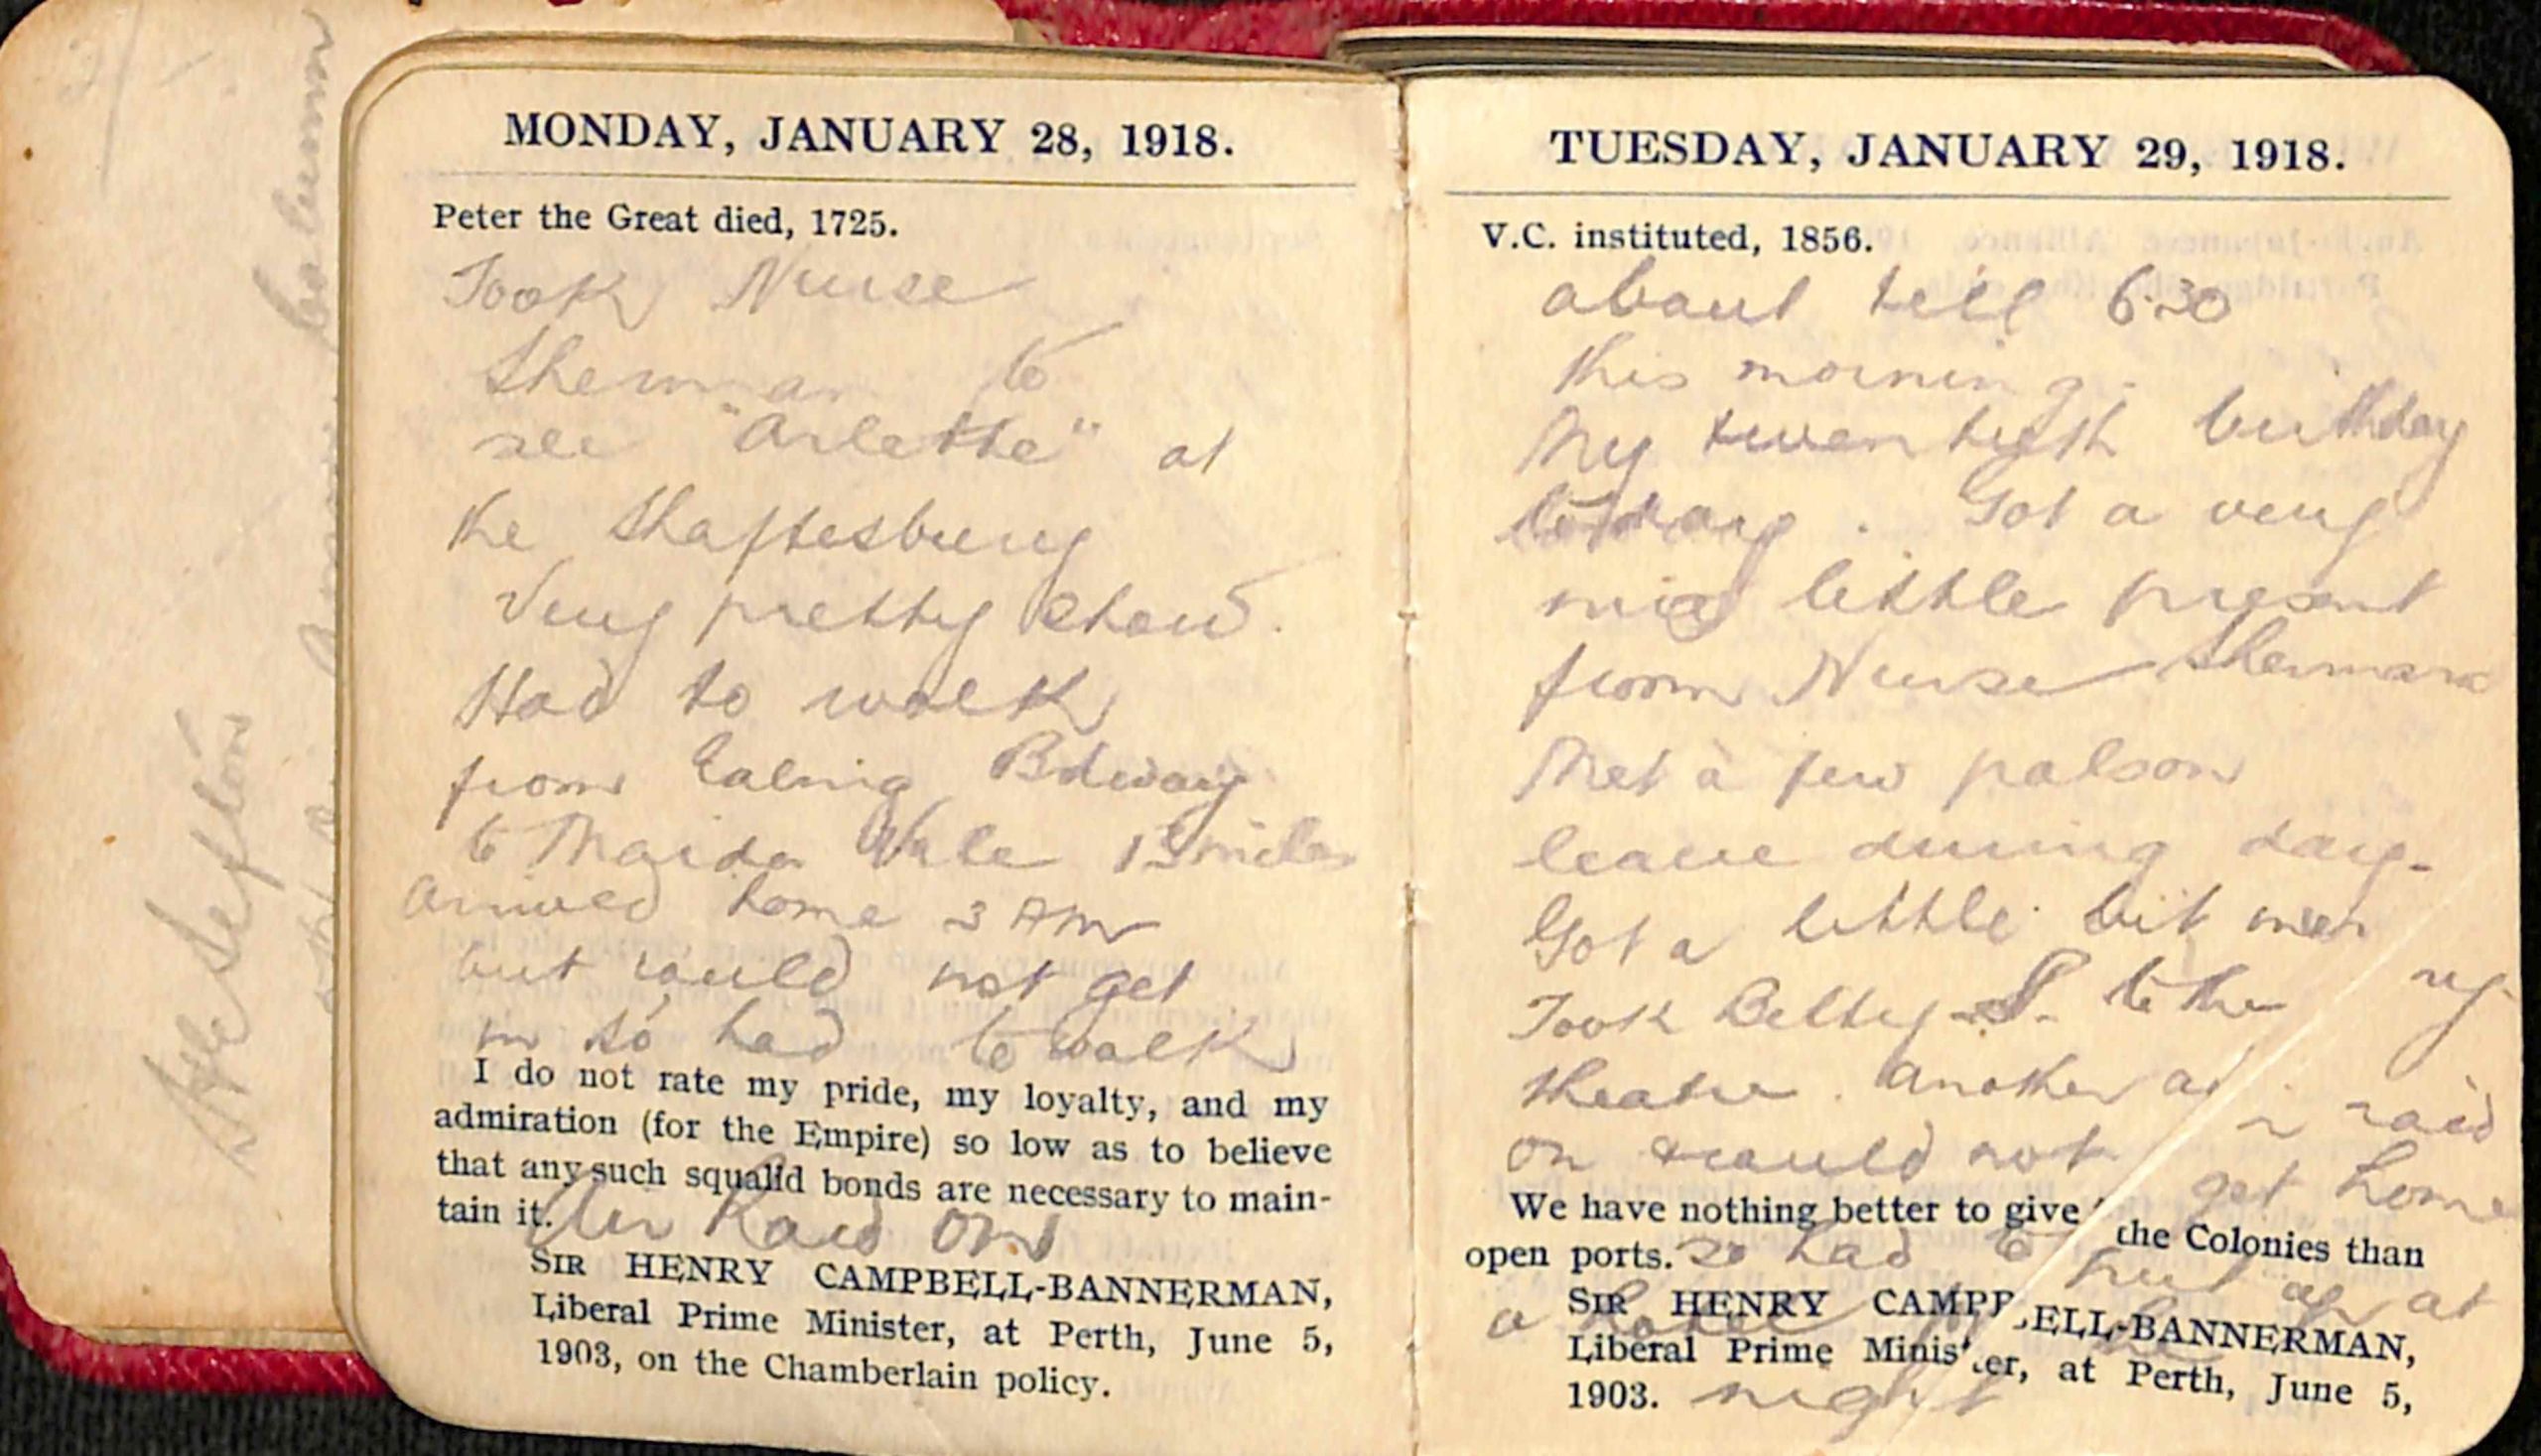 Stple Sefton
column
MONDAY, JANUARY 28, 1918.
Peter the Great died, 1725.
Took Nurse
Sherman to
see "Arlette" at
the Shaftesbury
Very pretty show.
Had to walk
from Ealing Bdway
to Maida Vale 13 miles
Arrived home 3 AM
but could not get
in so had to walk
I do not rate my pride, my loyalty, and my
admiration (for the Empire) so low as to believe
that any such squalid bonds are necessary to main-
tain it.
Air Raid on
SIR HENRY CAMPBELL-BANNERMAN,
Liberal Prime Minister, at Perth, June 5,
1903, on the Chamberlain policy.
TUESDAY, JANUARY 29, 1918.
V.C. instituted, 1856.
about till 6.30
this morning.
My twentyth birthday
today. Got a very
nice little present
from Nurse Sherman
Met a few pals on
leave during day.
Got a little bit merry
Took Betty S. to the
theatre. Another air raid
on & could not get home
We have nothing better to give the Colonies than
open ports. so had to put up at
a hotel for the
SIR HENRY CAMPBELL-BANNERMAN,
Liberal Prime Minister, at Perth, June 5,
1903. night